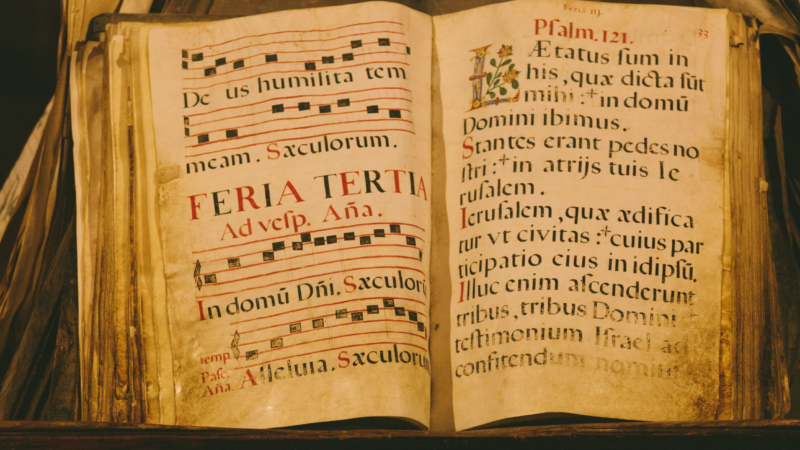 De us humilita tem
meam. Sæculorum.
FERIA TERTIA
Ad vesp. Aña.
In domũ Dñi. Sæculorũ
temp.
Pasc.
Aña. Alleluia. Sæculorum
Feria iij.
Psalm. 121. 33
LÆtatus sum in
his, quæ dicta sũt
mihi :+ in domũ
Domini ibimus.
Stantes erant pedes no
stri :+ in atrijs tuis Ie
rusalem.
Ierusalem, quæ ædifica
tur vt civitas :+ cuius par
ticipatio eius in idipsũ.
Illuc enim ascenderunt
tribus, tribus Domini +
testimonium Israel ad
confitendum nomini